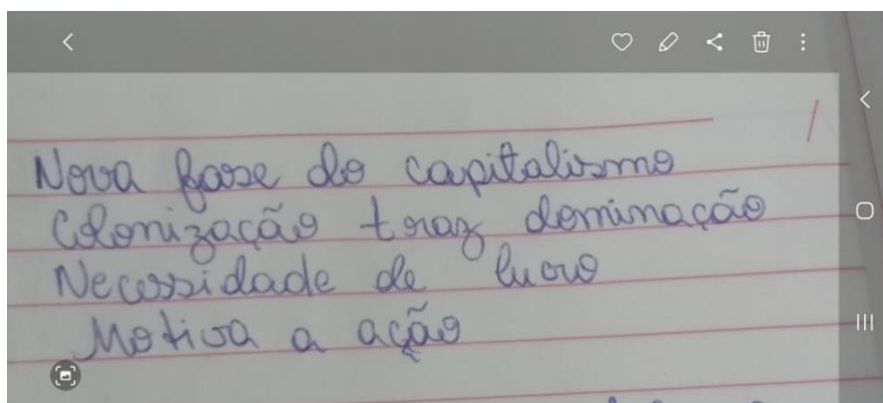 Nova fase do capitalismo
Colonização traz dominação
Necessidade de lucro
Motiva a ação